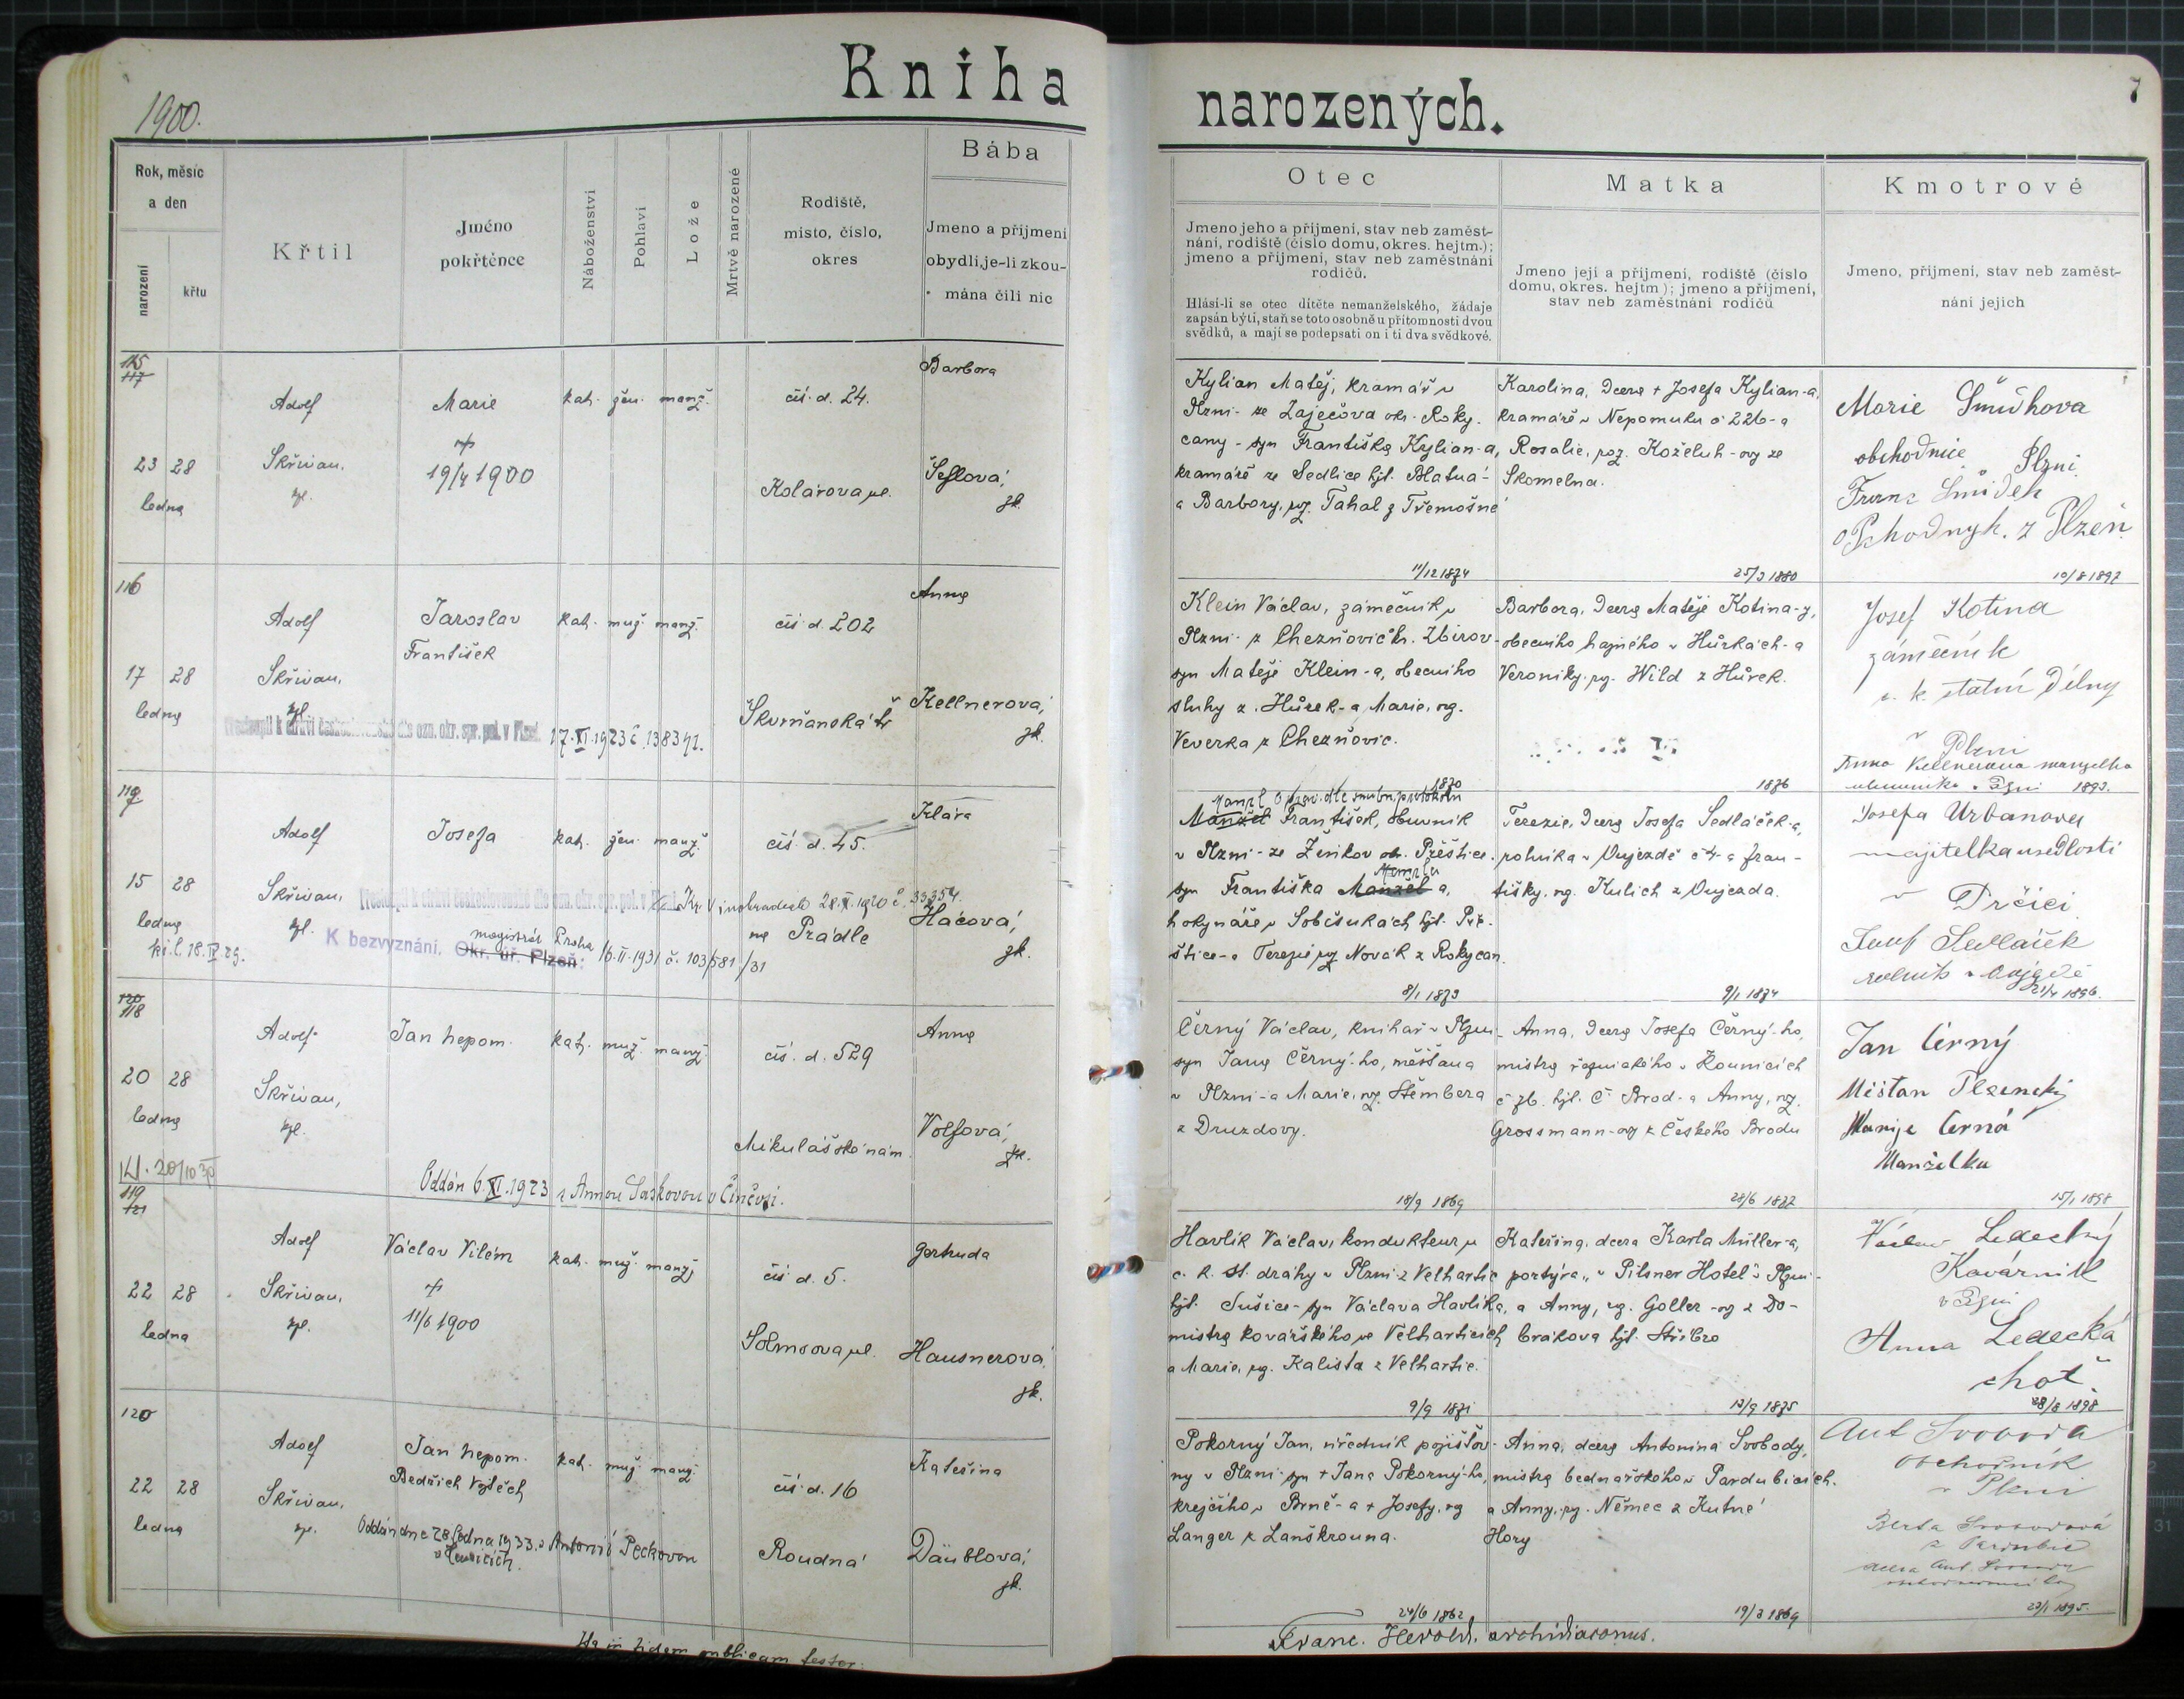 Kniha
narozených.
7
1900.
Rok, měsíc
a den
narození
křtu
Křtil
Jméno
pokřtěnce
Náboženství
Pohlaví
Lože
Mrtvě narozené
Rodiště,
místo, číslo,
okres
Bába
Jmeno a příjmení
obydlí, je-li zkou-
mána čili nic
Otec
Jmeno jeho a příjmení, stav neb zaměst-
nání, rodiště (číslo domu, okres. hejtm.);
jmeno a příjmení, stav neb zaměstnání
rodičů.
Hlásí-li se otec dítěte nemanželského, žádaje
zapsán býti, staň se toto osobně u přítomnosti dvou
svědků, a mají se podepsati on i ti dva svědkové.
Matka
Jmeno její a příjmení, rodiště (číslo
domu, okres. hejtm.); jmeno a příjmení,
stav neb zaměstnání rodičů
Kmotrové
Jmeno, příjmení, stav neb zaměst-
nání jejich
115
117
23 28
ledna
Adolf
Skřivan,
kpl.
Marie
19/4 1900
kat. žen. manž.
čís. d. 24.
Kolárova ul.
Barbora
Šeflová,
zk.
Kylian Matěj, kramář v
Plzni - ze Zaječova okr. Roky-
cany - syn Františka Kylian-a,
kramáře ze Sedlice hjt. Blatná -
a Barbory, roz. Tahal z Třemošné
11/12 1874
Karolina, dcera + Josefa Kylian-a,
kramáře v Nepomuku č 226 - a
Rosalie, roz. Koželuh-ovy ze
Skomelna.
25/3 1880
Marie Šmídhova
obchodnice Plzni
Franz Šmídeh
z Plzeň
10/8 1897
116
17 28
ledna
Adolf
Skřivan,
kpl.
Jaroslav
František
kat. muž. manž.
17. XI. 1923 č. 138371.
čís. d. 202
Škvrňanská tř
Anna
Kellnerová,
zk.
Klein Václav, zámečník v
Plzni - z Chezňovic h. Zbirov -
syn Matěje Klein-a, obecního
sluhy z Hůrek - a Marie, roz.
Veverka z Chezňovic.
1870
Barbora, dcera Matěje Kotina-y,
obecního hajného v Hůrkách - a
Veroniky, roz. Wild z Hůrek.
1876
Josef Kotina
zámečník
c. k. statní dílny
v Plzni
Anna Kellnerova manzelka
v Plzni 1893.
117
15 28
ledna
Adolf
Skřivan,
kpl.
Josefa
kat. žen. manž.
čís. d. 45.
na Prádle
Klára
Hácová,
zk.
Vinohradech 28. X. 1920 č. 33354.
K bezvyznání, Okr. úř. Plzeň:
magistrát Praha 16. II. 1931 č. 103/581/31
Manžel František, obuvník
v Plzni - ze Žinkov ok. Přeštice -
syn Františka Manžel-a,
hokynáře v Soběsukách hjt. Pře-
štice - a Terezie roz Novák z Rokycan.
8/1 1873
Terezie, dcera Josefa Sedláček-a,
rolníka v Vujezdě č 4 - a Fran-
tišky, roz. Kulich z Vujezda.
9/1 1874
Josefa Urbanova
majitelka usedlosti
v Drčici
Josef Sedláček
rolník v Vujezdě
21/4 1896.
120
118
20 28
ledna
Adolf
Skřivan,
kpl.
Jan Nepom.
kat. muž. manž.
čís. d. 529
Mikulášské nám.
Anna
Volfová,
zk.
20/10 30
Oddán 6. XI. 1923 s Annou Saskovou v Činěvsi.
Černý Václav, knihař v Plzni -
syn Jana Černý-ho, měšťana
v Plzni - a Marie, roz. Štembera
z Druzdovy.
18/9 1869
Anna, dcera Josefa Černý-ho,
mistra řeznického v Kounicích
č 76. hjt. Č Brod - a Anny, roz.
Grossmann-ovy z Českého Brodu
28/6 1877
Jan Černý
Mišťan Plzenský
Marije Černá
Manželka
15/1 1898
119
121
22 28
ledna
Adolf
Skřivan,
kpl.
Václav Vilém
11/6 1900
kat. muž. manž.
čís. d. 5.
Solmsova ul.
Gertruda
Hausnerová,
zk.
Havlík Václav, kondukteur v
c. k. st. dráhy v Plzni z Velhartic
hjt. Sušice - syn Václava Havlíka,
mistra kovářského ve Velharticích
a Marie, roz. Kalista z Velhartic.
9/9 1871
Kateřina, dcera Karla Müller-a,
portýra „v Pilsner Hotel" v Plzni -
a Anny, roz. Goller-ovy z Do-
brákova hjt. Stříbro
13/9 1875
Václav Ledecký
Kavárník
v Plzni
Anna Ledecká
choť.
28/8 1898
120
22 28
ledna
Adolf
Skřivan,
kpl.
Jan Nepom.
Bedřich Vojtěch
kat. muž. manž.
čís. d. 16
Roudná
Kateřina
Däublová,
zk.
Oddán dne 28. ledna 1933. s Antonií Peckovou
Pokorný Jan, úředník pojišťov-
ny v Plzni - syn + Jana Pokorný-ho,
krejčího v Brně - a + Josefy, roz
Langer z Lanškrouna.
24/6 1862
Anna, dcera Antonína Svobody,
mistra bednářského v Pardubicích.
a Anny, roz. Němec z Kutné
Hory
19/3 1869
Ant Svoboda
obchodník
v Plzni
Berta Svobodová
z Pardubic
dcera Ant. Svobody
23/1 1895.
Ita in fidem publicam testor:
Franc. Herold, archidiaconus.